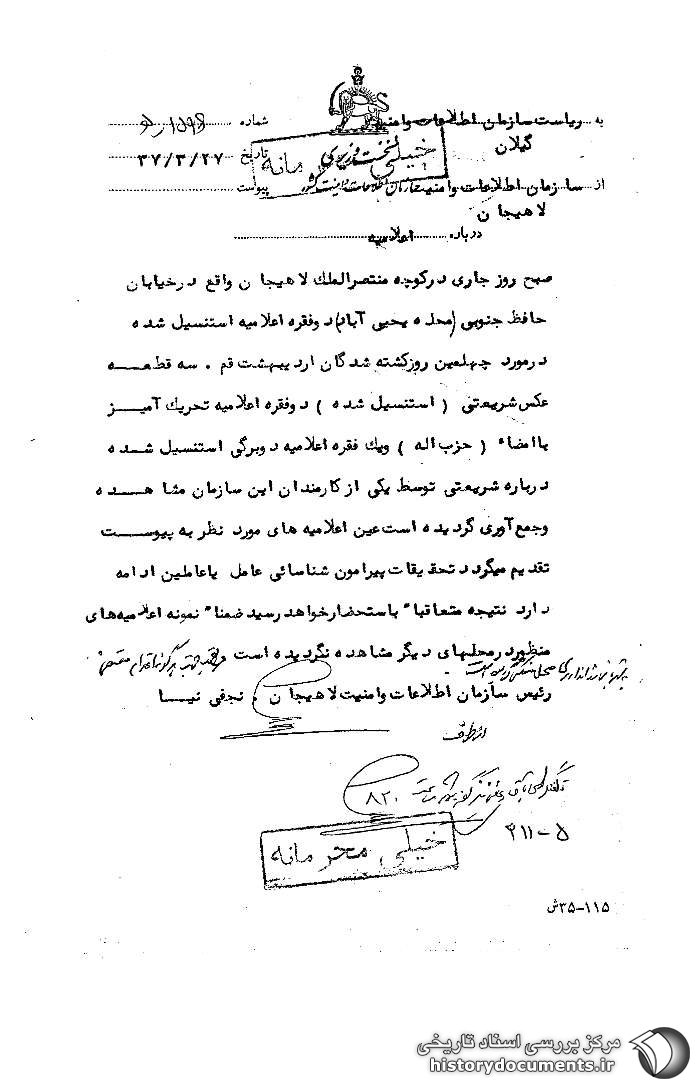 به ریاست سازمان اطلاعات و امنیت گیلان
شماره
نخست وزیری
خیلی محرمانه
تاریخ ۳۷/۳/۲۷
از سازمان اطلاعات و امنیت لاهیجان
سازمان اطلاعات و امنیت کشور
پیوست
درباره اعلامیه
صبح روز جاری در کوچه منتصرالملك لاهیجان واقع در خیابان
حافظ جنوبی (محله یحیی آباد) دو فقره اعلامیه استنسیل شده
در مورد چهلمین روز کشته شدگان اردیبهشت قم . سه قطعه
عکس شریعتی ( استنسیل شده ) دو فقره اعلامیه تحریك آمیز
با امضاء ( حزب اله ) ویك فقره اعلامیه دو برگی استنسیل شده
درباره شریعتی توسط یکی از کارمندان این سازمان مشاهده
و جمع آوری گردیده است عین اعلامیه های مورد نظر به پیوست
تقدیم میگردد تحقیقات پیرامون شناسائی عامل یا عاملین ادامه
دارد نتیجه متعاقبا" باستحضار خواهد رسید ضمنا" نمونه اعلامیه های
منظور در محلهای دیگر مشاهده نگردیده است
رئیس سازمان اطلاعات و امنیت لاهیجان . نجفی نیا
از طرف
۸۲۰
۳۱۱-۵
خیلی محرمانه
۱۱۵-۳۵ش
مرکز بررسی اسناد تاریخی
historydocuments.ir